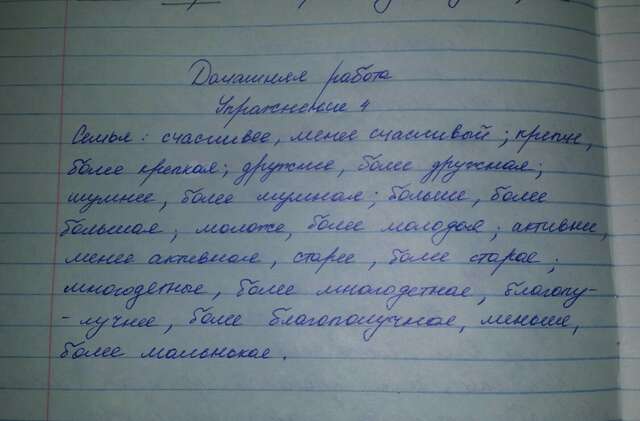 Домашняя работа
Упражнение 4
Семья: счасливее, менее счасливый; крепче,
более крепкая; дружнее, более дружная;
шумнее, более шумная; больше, более
большая; моложе, более молодая; активнее,
менее активная, старее, более старая;
многодетные, более многодетная, благопу-
-лучнее, более благополучная, меньше,
более маленькая.